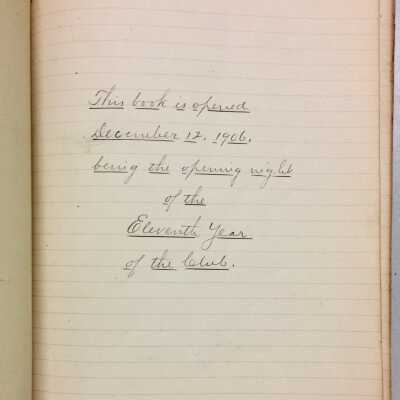 This book is opened
December 12. 1906.
being the opening night
of the
Eleventh Year
of the Club.